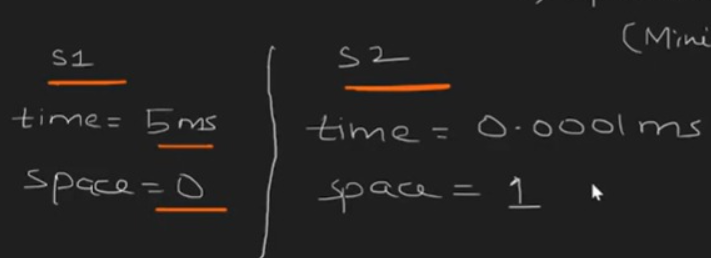 (Mini
S1
time = 5ms
space = 0
S2
time = 0.0001 ms
space = 1